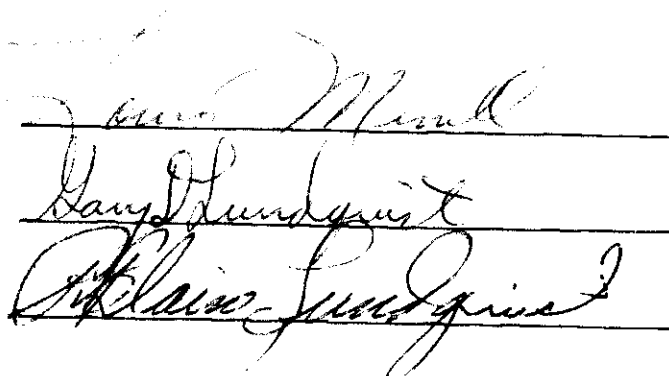 Louis Merrill
Gary D Lundquist
Elaine Lundquist